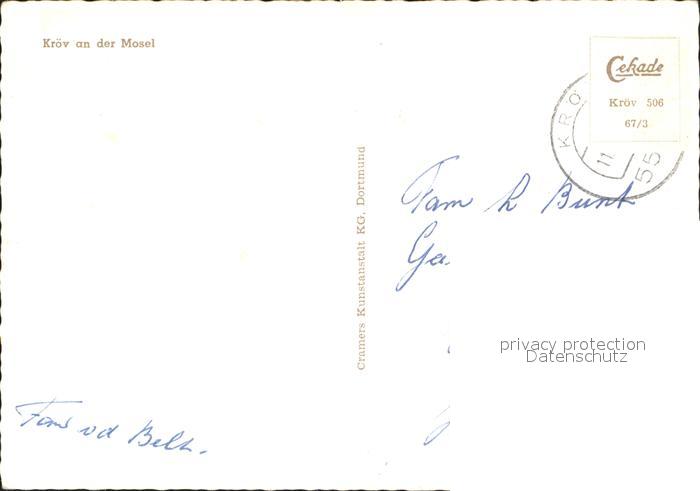 Kröv an der Mosel
Cekade
Kröv 506
67/3
KRÖ
11
55
Cramers Kunstanstalt KG, Dortmund
Fam h Bunt
Ga
privacy protection
Datenschutz
Fam vd Belt.